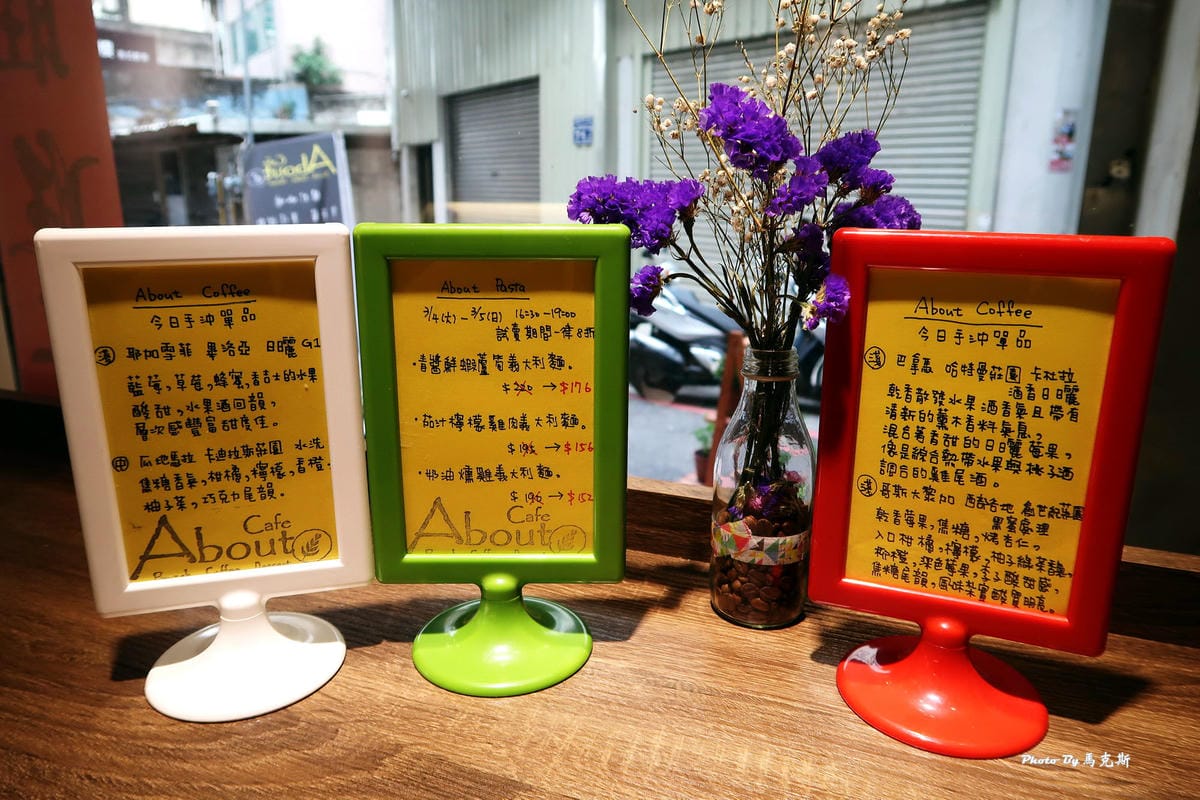 About Coffee
今日手沖單品
淺 耶加雪菲 畢洛亞 日曬 G1
藍莓，草莓，蜂蜜，香吉士的水果
酸甜，水果酒回韻，
層次感豐富甜度佳。
中 瓜地馬拉 卡迪拉斯莊園 水洗
焦糖香氣，柑橘，檸檬，香橙，
柚子茶，巧克力尾韻。
Cafe
About
About Pasta
3/4(火)-3/5(日) 16:30-19:00
試賣期間一律8折
·青醬鮮蝦蘆筍義大利麵。
$220→$176
·茄汁檸檬雞肉義大利麵。
$195→$156
·奶油燻雞義大利麵。
$190→$152
Cafe
About
About Coffee
今日手沖單品
淺 巴拿馬 哈特曼莊園 卡杜拉
酒香日曬
乾香散發水果酒香氣且帶有
清新的薰木香料氣息，
混合著香甜的日曬莓果，
像是綜合熱帶水果與桃子酒
調合的雞尾酒。
淺 哥斯大黎加 西部谷地 創世紀莊園
黑蜜處理
乾香莓果，焦糖，烤杏仁，
入口柑橘，檸檬，柚子綠茶韻，
柳橙，深色莓果，李子酸甜感，
焦糖尾韻，風味紮實酸質明亮。
About
Photo By 馬克斯